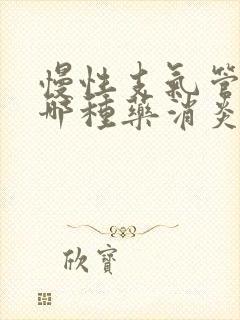 慢性支氣管
哪種藥消炎
欣寶